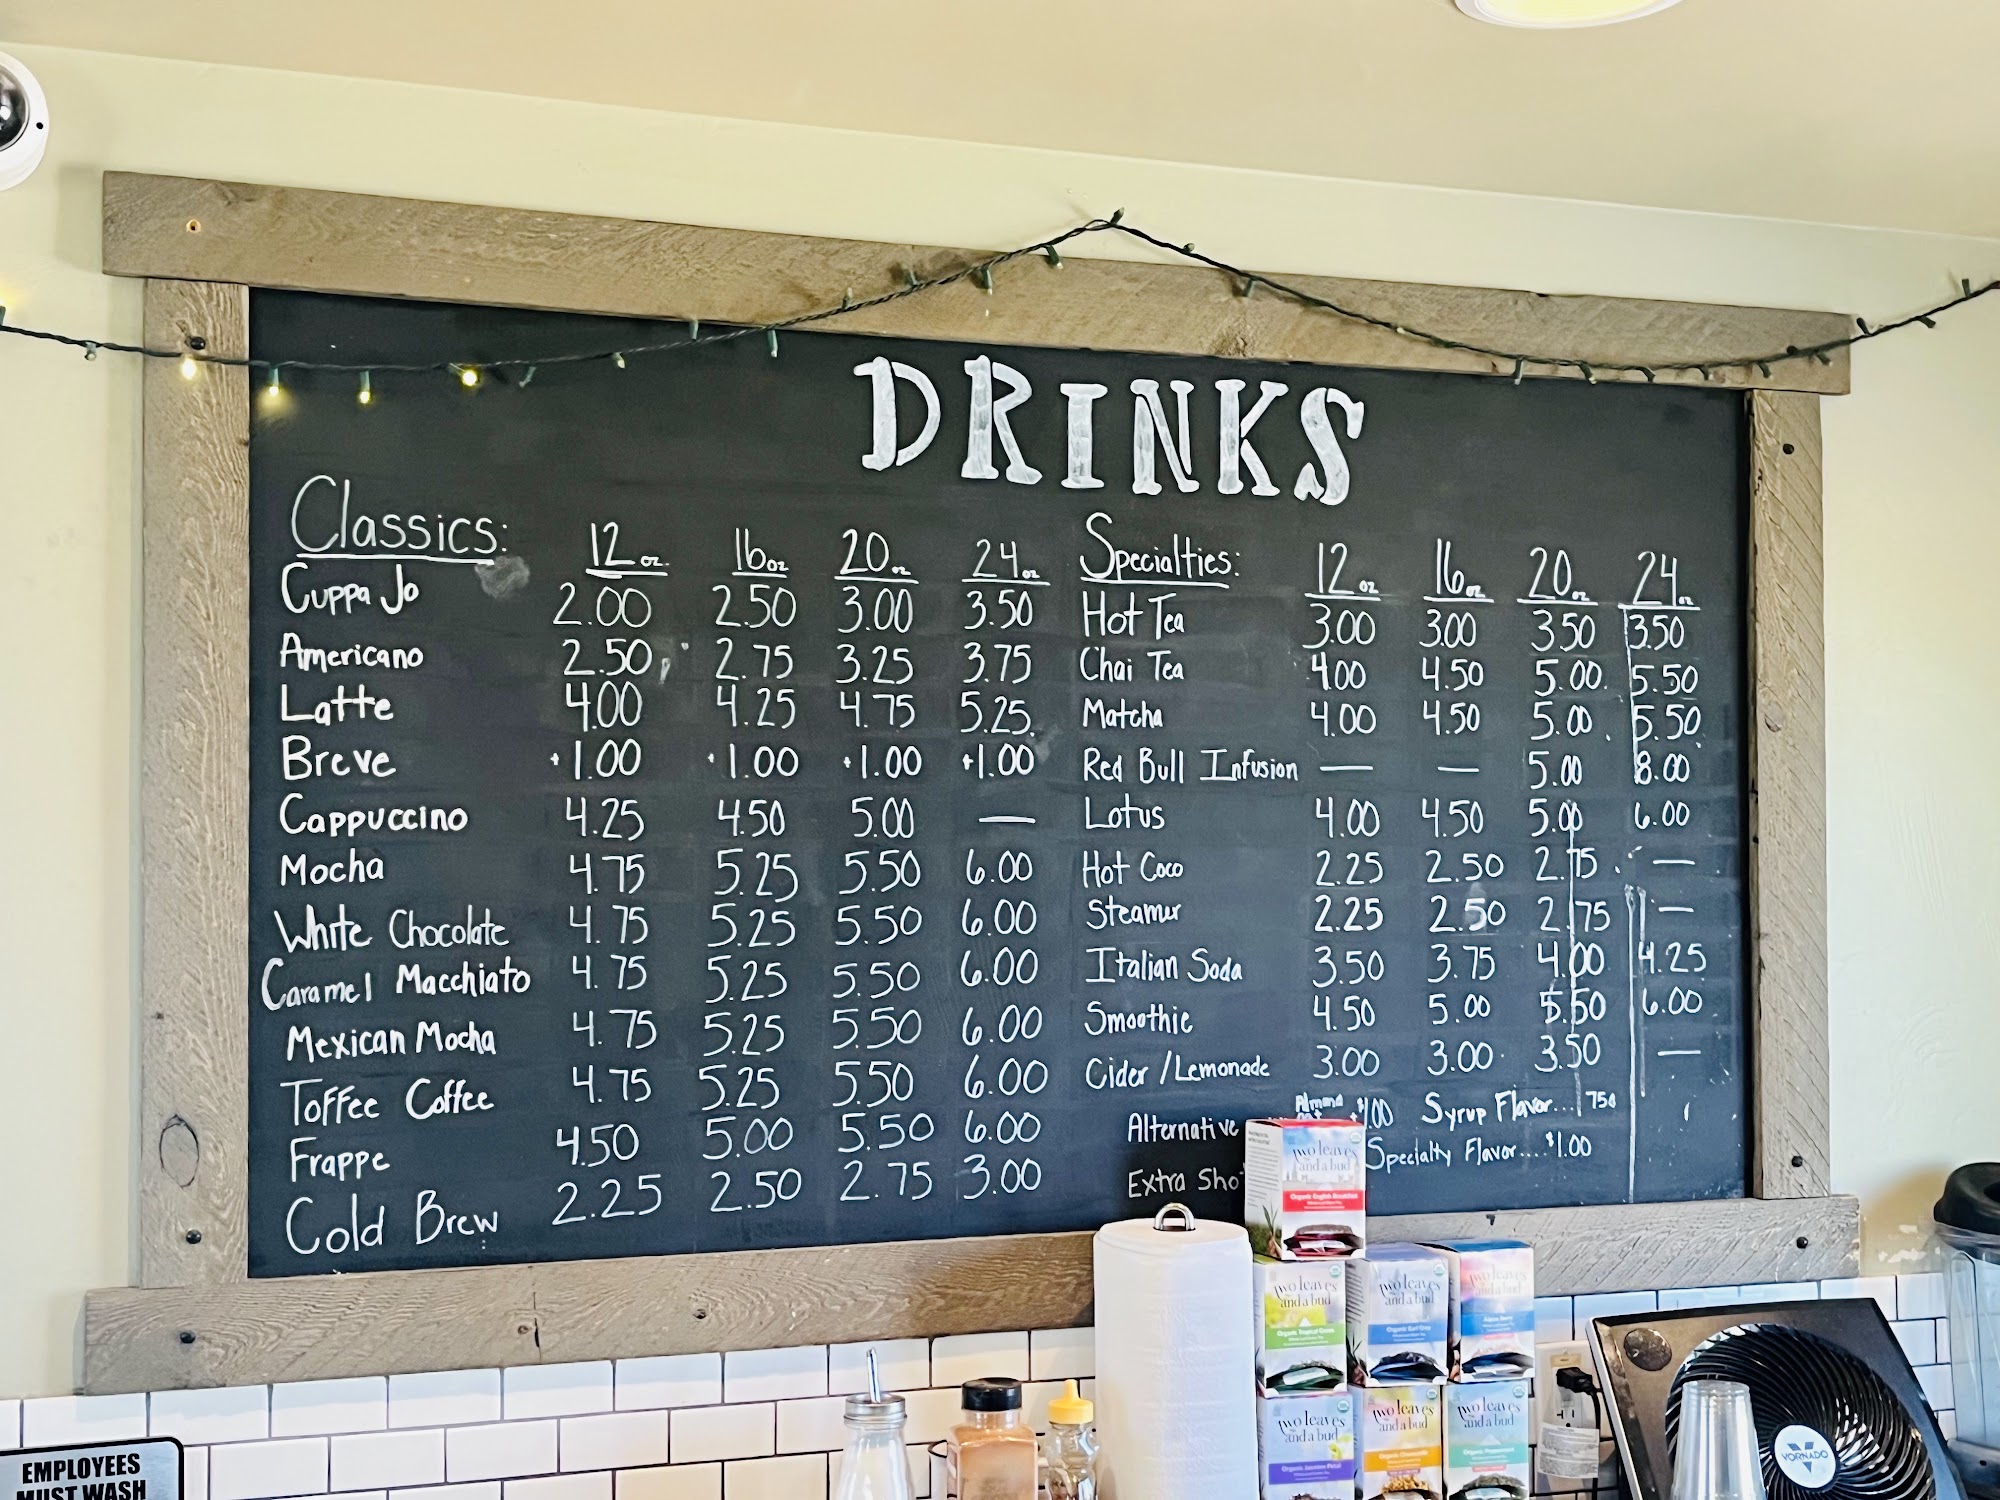 DRINKS
Classics: 12 oz. 16 oz 20 oz 24 oz
Cuppa Jo 2.00 2.50 3.00 3.50
Americano 2.50 2.75 3.25 3.75
Latte 4.00 4.25 4.75 5.25
Breve +1.00 +1.00 +1.00 +1.00
Cappuccino 4.25 4.50 5.00 —
Mocha 4.75 5.25 5.50 6.00
White Chocolate 4.75 5.25 5.50 6.00
Caramel Macchiato 4.75 5.25 5.50 6.00
Mexican Mocha 4.75 5.25 5.50 6.00
Toffee Coffee 4.75 5.25 5.50 6.00
Frappe 4.50 5.00 5.50 6.00
Cold Brew 2.25 2.50 2.75 3.00
Specialties: 12 oz 16 oz 20 oz 24 oz
Hot Tea 3.00 3.00 3.50 3.50
Chai Tea 4.00 4.50 5.00 5.50
Matcha 4.00 4.50 5.00 5.50
Red Bull Infusion — — 5.00 8.00
Lotus 4.00 4.50 5.00 6.00
Hot Coco 2.25 2.50 2.75 —
Steamer 2.25 2.50 2.75 —
Italian Soda 3.50 3.75 4.00 4.25
Smoothie 4.50 5.00 5.50 6.00
Cider / Lemonade 3.00 3.00 3.50 —
Alternative Almond $1.00 Syrup Flavor... 75¢
Extra Sho Specialty Flavor.... $1.00
two leaves and a bud
Organic English Breakfast
two leaves and a bud
Organic Tropical Green
two leaves and a bud
Organic Earl Grey
two leaves and a bud
two leaves and a bud
Organic Jasmine Petal
two leaves and a bud
Organic Chamomile
two leaves and a bud
Organic Peppermint
VORNADO
EMPLOYEES
MUST WASH